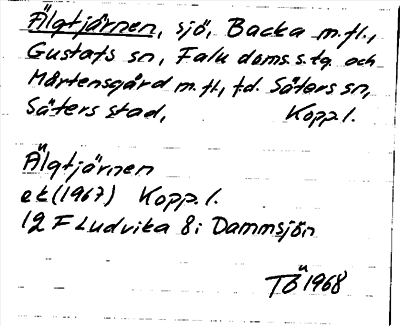 Älgtjärnen, sjö, Backa m.fl.,
Gustafs sn, Falu doms.s.tg. och
Mårtensgård m.fl, f.d. Säters sn,
Säters stad, Kopp.l.
Älgtjärnen
ek(1967) Kopp.l.
12 F Ludvika 8i Dammsjön
TÖ 1968